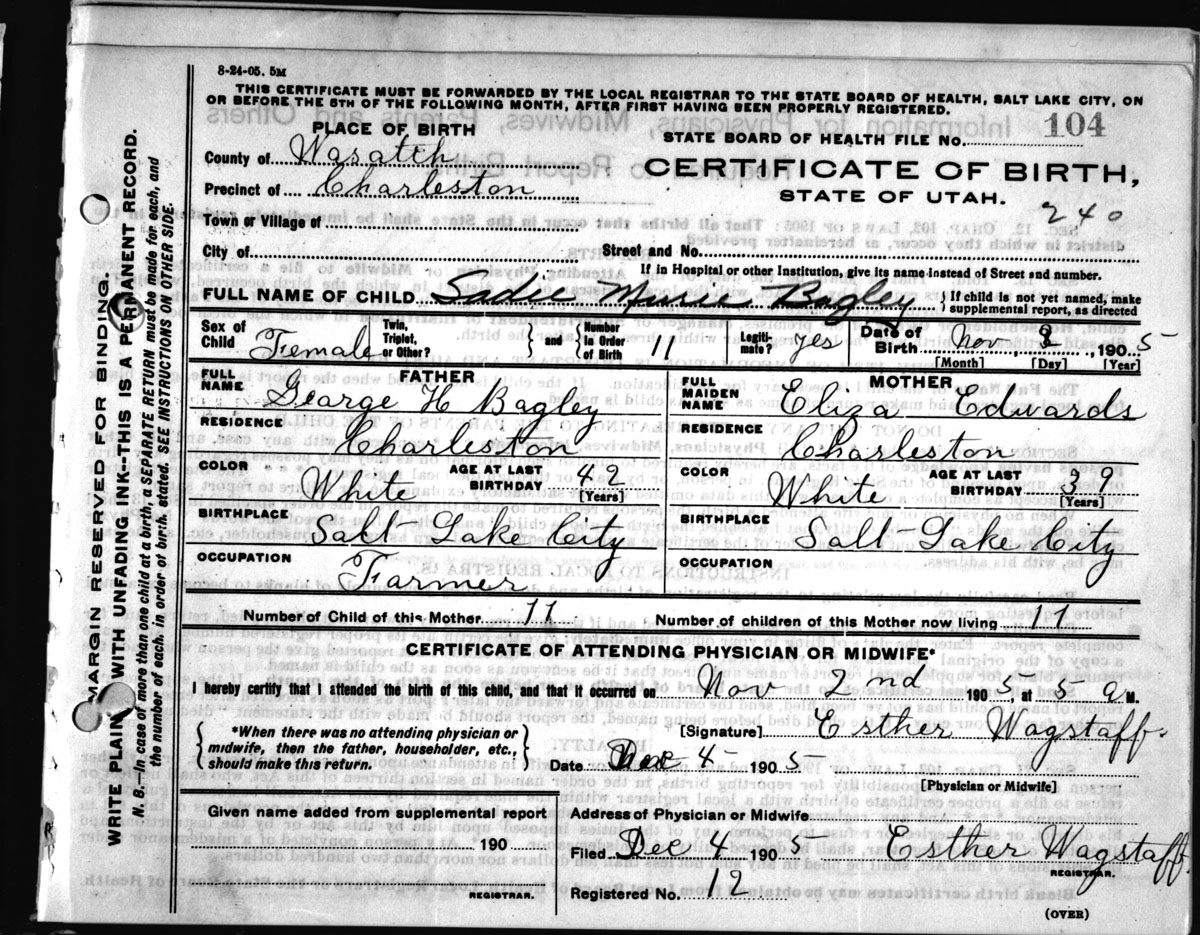 8-24-05. 5M
THIS CERTIFICATE MUST BE FORWARDED BY THE LOCAL REGISTRAR TO THE STATE BOARD OF HEALTH, SALT LAKE CITY, ON
OR BEFORE THE 5TH OF THE FOLLOWING MONTH, AFTER FIRST HAVING BEEN PROPERLY REGISTERED.
PLACE OF BIRTH
STATE BOARD OF HEALTH FILE NO. 104
County of Wasatch
CERTIFICATE OF BIRTH,
Precinct of Charleston
STATE OF UTAH.
240
Town or Village of
City of Street and No.
If in Hospital or other Institution, give its name instead of Street and number.
FULL NAME OF CHILD Sadie Murie Bagley { If child is not yet named, make supplemental report, as directed
Sex of Child Female Twin, Triplet, or Other? } and { Number in Order of Birth 11 Legitimate? yes Date of Birth Nov, 2, 1905
[Month] [Day] [Year]
FATHER
MOTHER
FULL NAME George H Bagley
FULL MAIDEN NAME Eliza Edwards
RESIDENCE Charleston
RESIDENCE Charleston
COLOR White AGE AT LAST BIRTHDAY 42 [Years]
COLOR White AGE AT LAST BIRTHDAY 39 [Years]
BIRTHPLACE Salt Lake City
BIRTHPLACE Salt Lake City
OCCUPATION Farmer
OCCUPATION
Number of Child of this Mother 11 Number of children of this Mother now living 11
CERTIFICATE OF ATTENDING PHYSICIAN OR MIDWIFE*
I hereby certify that I attended the birth of this child, and that it occurred on Nov 2nd 1905 at 5 a M.
{ *When there was no attending physician or midwife, then the father, householder, etc., should make this return. }
[Signature] Esther Wagstaff.
Date Dec 4 1905
[Physician or Midwife]
Given name added from supplemental report
190
REGISTRAR.
Address of Physician or Midwife
Filed Dec 4 1905 Esther Wagstaff.
REGISTRAR.
Registered No. 12
(OVER)
MARGIN RESERVED FOR BINDING.
WRITE PLAINLY WITH UNFADING INK--THIS IS A PERMANENT RECORD.
N. B.--In case of more than one child at a birth, a SEPARATE RETURN must be made for each, and
the number of each, in order of birth, stated. SEE INSTRUCTIONS ON OTHER SIDE.